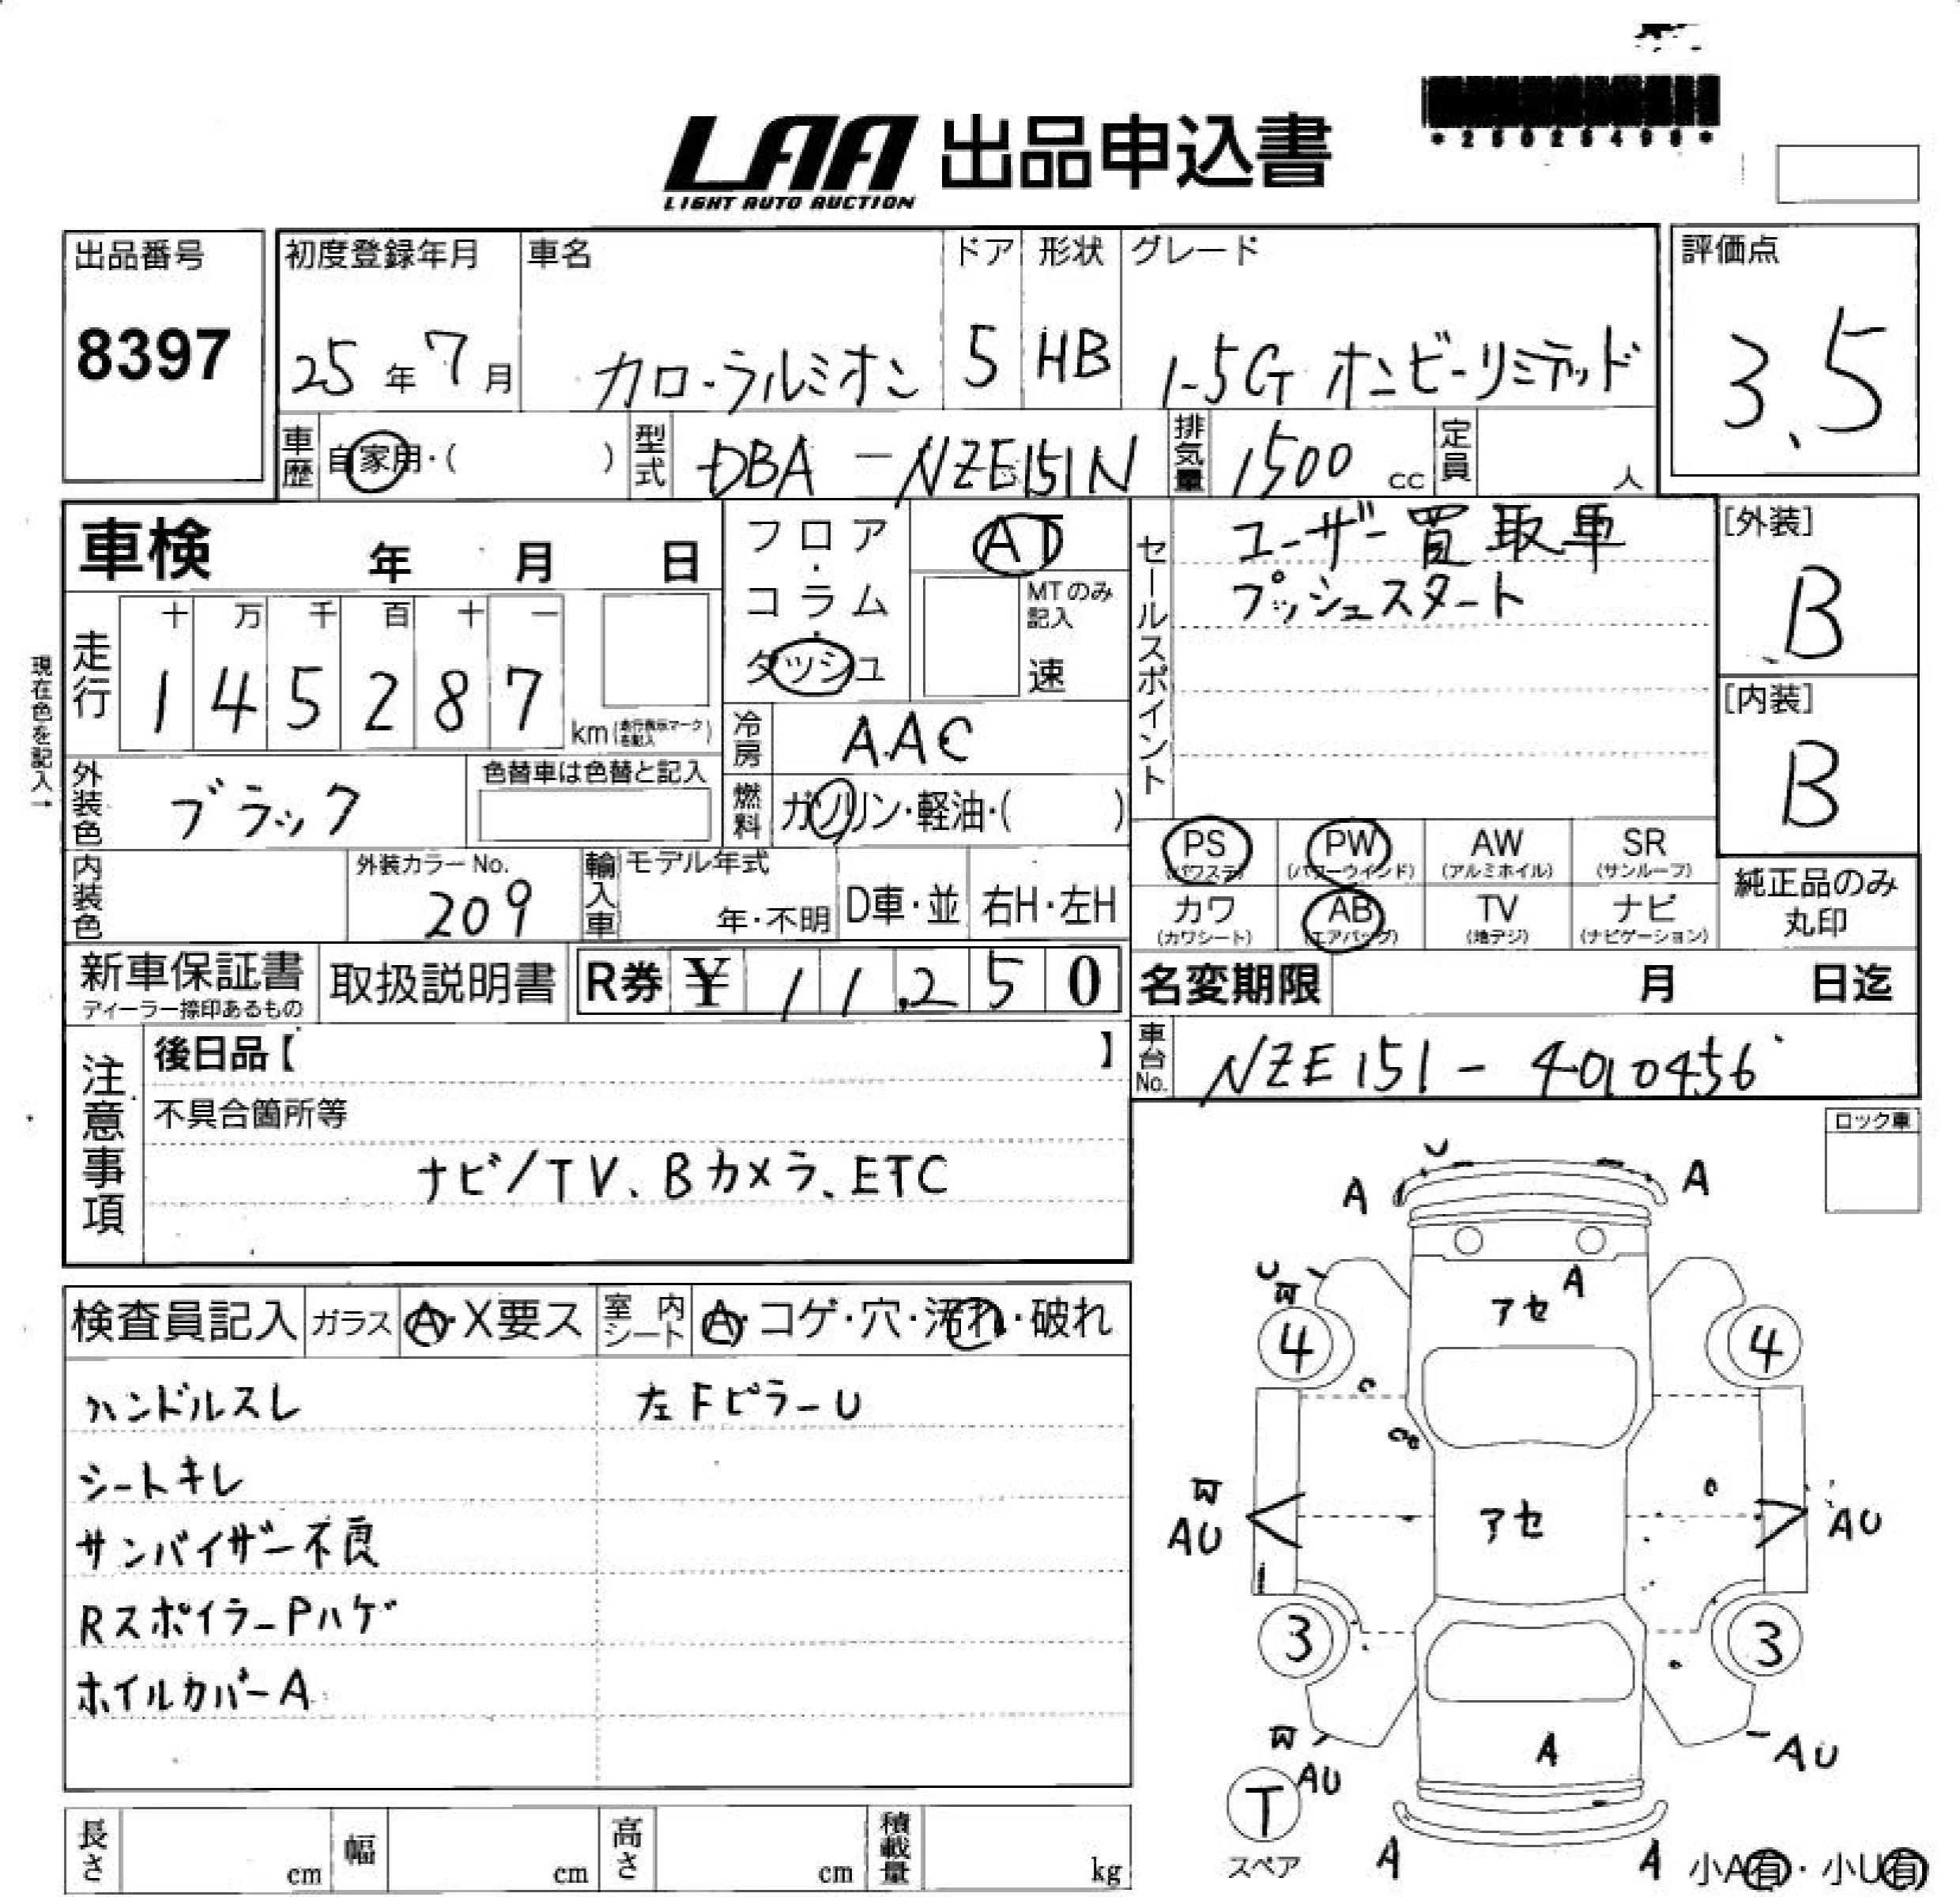 LAA 出品申込書
LIGHT AUTO AUCTION
出品番号
8397
初度登録年月
25年7月
車名
カローラルミオン
ドア
5
形状
HB
グレード
1.5G オンビーリミテッド
評価点
3.5
車歴
自家用・( )
型式
DBA-NZE151N
排気量
1500 cc
定員
人
車検 年 月 日
フロア・コラム・ダッシュ
AT
MTのみ記入
速
セールスポイント
ユーザー買取車
プッシュスタート
[外装]
B
[内装]
B
走行
十 万 千 百 十 一
1 4 5 2 8 7
km
現在色を記入→
冷房
AAC
外装色
ブラック
色替車は色替と記入
燃料
ガソリン・軽油・( )
PS (パワステ)
PW (パワーウインド)
AW (アルミホイル)
SR (サンルーフ)
カワ (カワシート)
AB (エアバッグ)
TV (地デジ)
ナビ (ナビゲーション)
純正品のみ丸印
内装色
外装カラーNo.
209
輸入車
モデル年式
年・不明
D車・並
右H・左H
新車保証書
ディーラー捺印あるもの
取扱説明書
R券 ¥ 11,250
名変期限 月 日迄
車台No.
NZE151-4010456
注意事項
後日品【 】
不具合箇所等
ナビ/TV、Bカメラ、ETC
ロック車
検査員記入
ガラス
A・X要ス
室内シート
A・コゲ・穴・汚れ・破れ
ハンドルスレ
左FピラーU
シートキレ
サンバイザー不良
RスポイラーPハゲ
ホイルカバーA
U
A
A
U
A
アセ
4
4
アセ
AU
AU
3
3
A
AU
AU
T
スペア
A
A
小A有・小U有
長さ cm
幅 cm
高さ cm
積載量 kg